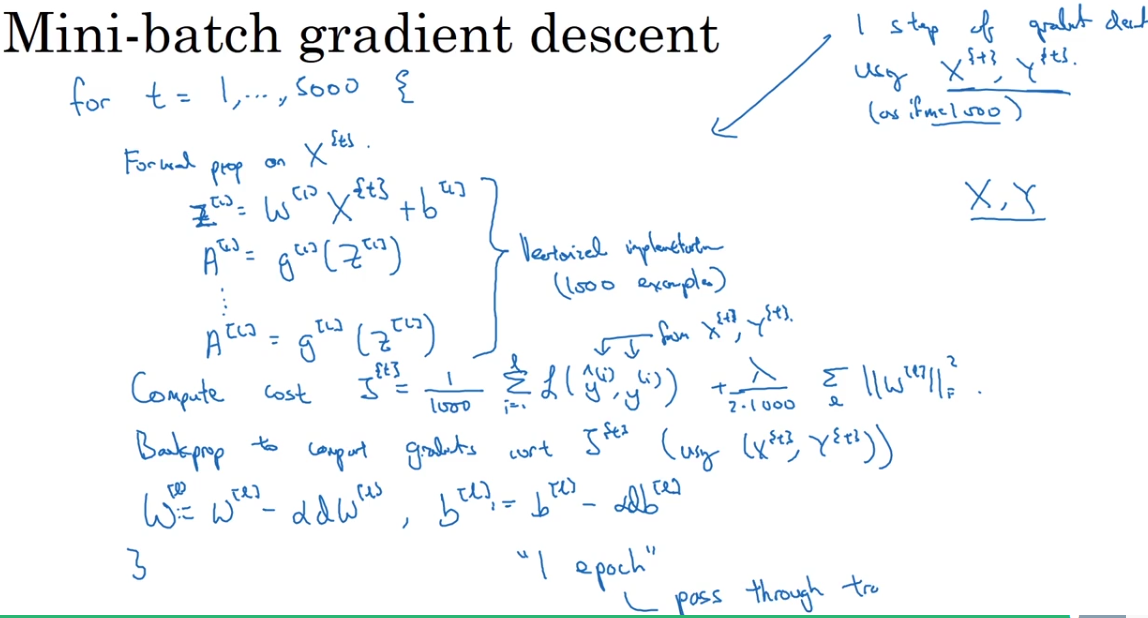 Mini-batch gradient descent
1 step of gradient descent
using X^{t}, Y^{t}.
(as if m=1000)
for t = 1,..., 5000 {
Forward prop on X^{t}.
X, Y
Z^[1] = W^[1] X^{t} + b^[1]
A^[1] = g^[1](Z^[1])
Vectorized implementation
(1000 examples)
⋮
A^[L] = g^[L](Z^[L])
from X^{t}, Y^{t}.
Compute cost J^{t} = 1/1000 Σ_{i=1}^{l} L(ŷ^(i), y^(i)) + λ/(2·1000) Σ_l ||W^[l]||_F^2.
Backprop to compute gradients wrt J^{t} (using (X^{t}, Y^{t}))
W^[l] := W^[l] - αdW^[l], b^[l] := b^[l] - αdb^[l]
}
"1 epoch"
pass through tra